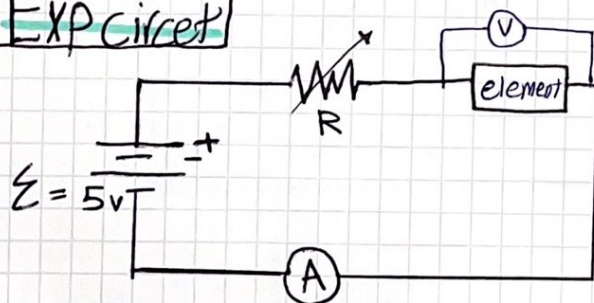 EXP circet
V
element
R
- +
Σ = 5v
A